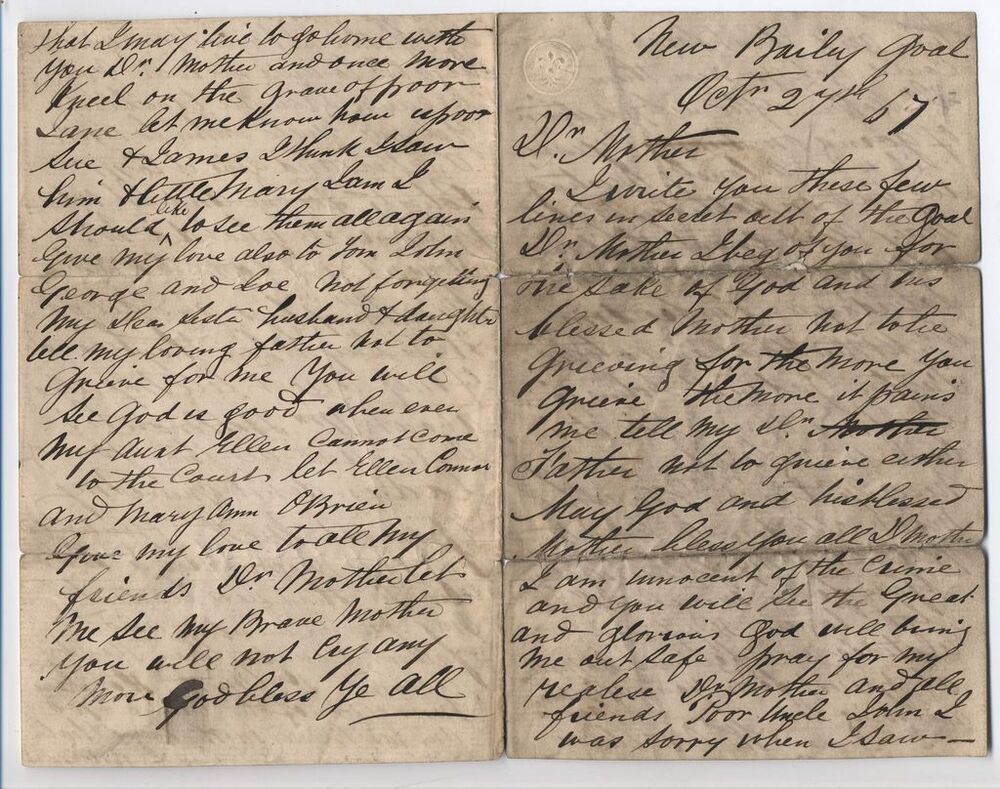 New Baily Goal
Octr 27th 67
Dr. Mother
I write you these few
lines in secret out of the Goal
Dr. Mother I beg of you for
the sake of God and his
blessed Mother not to be
grieving for the more you
grieve the more it pains
me tell my Dr. Mother
Father not to grieve either
May God and his blessed
Mother bless you all D Mother
I am innocent of the Crime
and you will see the Great
and glorious God will bring
me out safe pray for my
realese Dr Mother and all
friends Poor Uncle John I
was sorry when I saw
that I may live to go home with
you Dr. Mother and once more
Kneel on the grave of poor
Jane let me know how is poor
Sue & James I think I saw
him & little Mary Jam I
should like to see them all again
Give my love also to Tom John
George and Joe not forgetting
My Dear Sister husband & daughter
tell my loving father not to
Grieve for me You will
see God is good when ever
my Aunt Ellen Cannot come
to the Court let Ellen Connor
and Mary Ann O'Brien
Give my love to all my
friends Dr. Mother let
Me see my Brave Mother
you will not Cry any
More God bless Ye All